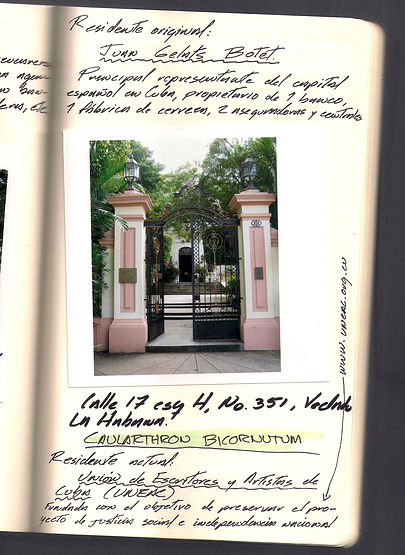 Residente original:
Juan Gelats Botet.
Principal representante del capital
español en Cuba, propietario de 1 banco,
1 fábrica de cerveza, 2 aseguradoras y centrales
www.uneac.org.cu
Calle 17 esq H, No. 351, Vedado
La Habana.
CAULARTHRON BICORNUTUM
Residente actual:
Unión de Escritores y Artistas de
Cuba (UNEAC)
Fundada con el objetivo de preservar el pro-
yecto de justicia social e independencia nacional